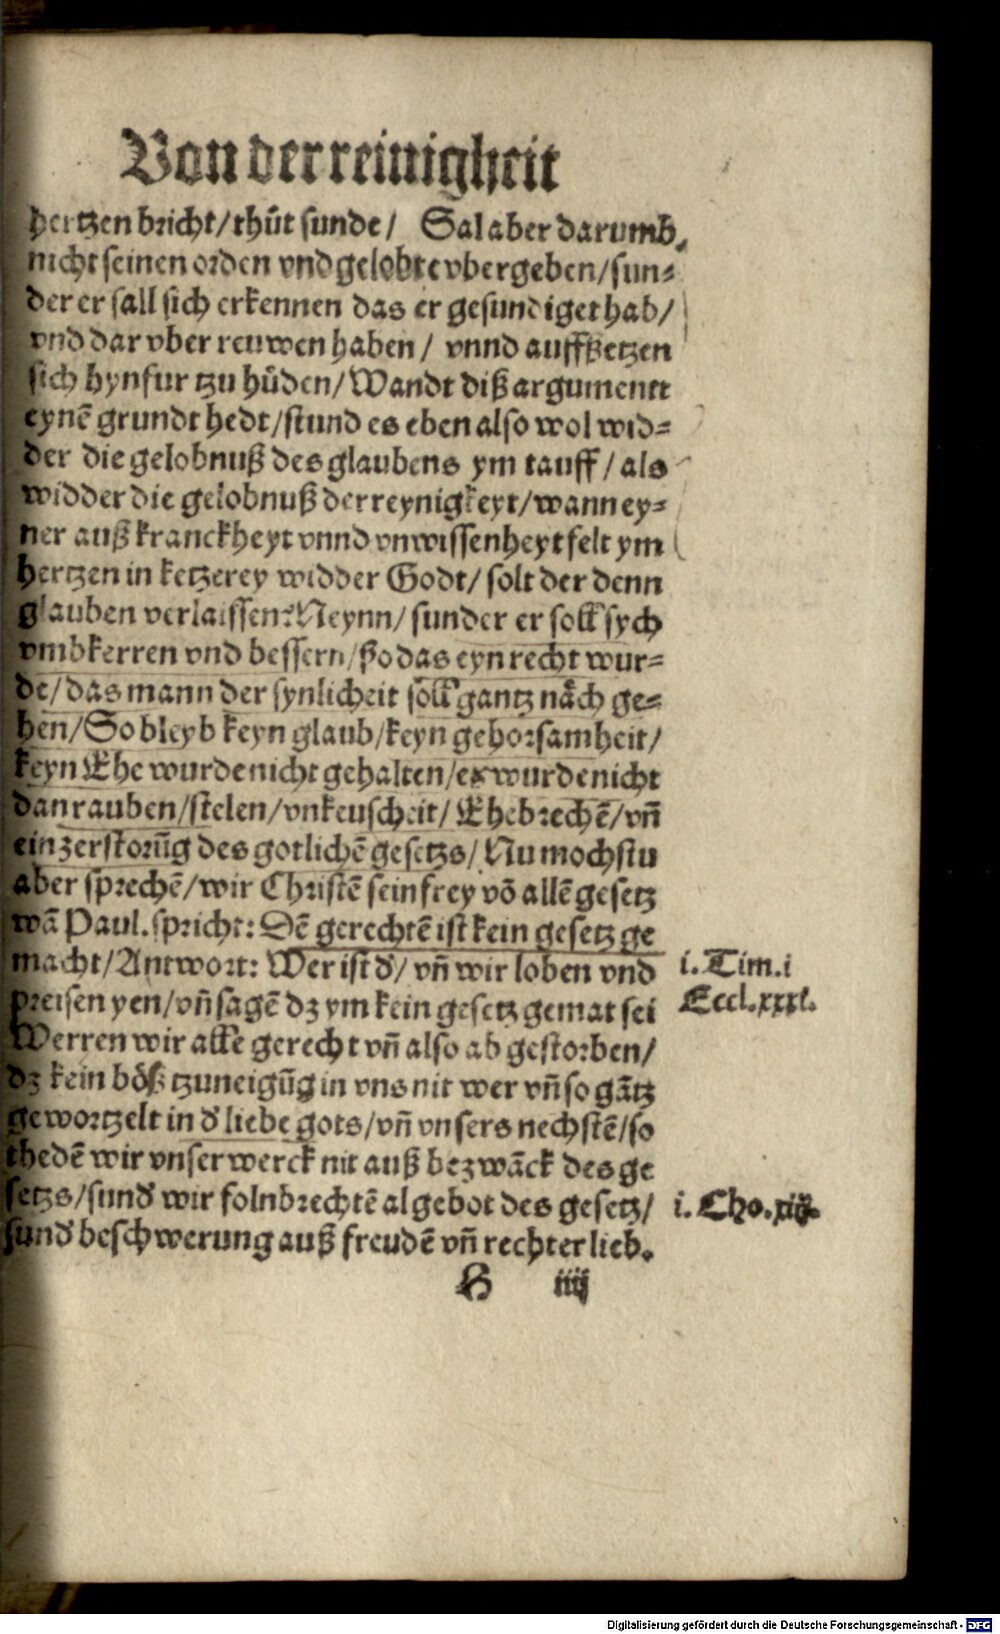 Von der reinigheit
hertzen bricht/thůt sunde/ Sal aber darumb
nicht seinen orden vnd gelobte vbergeben/sun⸗
der er sall sich erkennen das er gesundiget hab/
vnd dar vber reuwen haben/ vnnd auffßetzen
sich hynfur tzu hůden/Wandt diß argumentt
eynē grundt hedt/stund es eben also wol wid⸗
der die gelobnuß des glaubens ym tauff/als
widder die gelobnuß der reynigkeyt/wann ey⸗
ner auß kranckheyt vnnd vnwissenheyt felt ym
hertzen in ketzerey widder Godt/solt der denn
glauben verlaissen? Neynn/sunder er soll sych
vmbkerren vnd bessern/ßo das eyn recht wur⸗
de/das mann der synlicheit soll gantz nåch ge⸗
hen/So bleyb keyn glaub/keyn gehorsamheit/
keyn Ehe wurde nicht gehalten/ex wurde nicht
dan rauben/stelen/vnkeuscheit/Ehebrechē/vñ
ein zerstorūg des gotlichē gesetzs/Nu mochstu
aber sprechē/wir Christē sein frey võ allē gesetz
wã Paul. spricht: Dē gerechtē ist kein gesetz ge
macht/Antwort: Wer ist d'/vñ wir loben vnd
preisen yen/vñ sagē dz ym kein gesetz gemat sei
Werren wir alle gerecht vñ also ab gestorben/
dz kein bőß tzuneigūg in vns nit wer vñ so gãtz
gewortzelt in d' liebe gots/vñ vnsers nechstē/so
thedē wir vnser werck nit auß bezwãck des ge
setzs/sund' wir folnbrechtē al gebot des gesetz/
sund' beschwerung auß freudē vñ rechter lieb.
i. Tim. i
Eccl. xxxi.
i. Cho. xiij.
H iiij
Digitalisierung gefördert durch die Deutsche Forschungsgemeinschaft - DFG